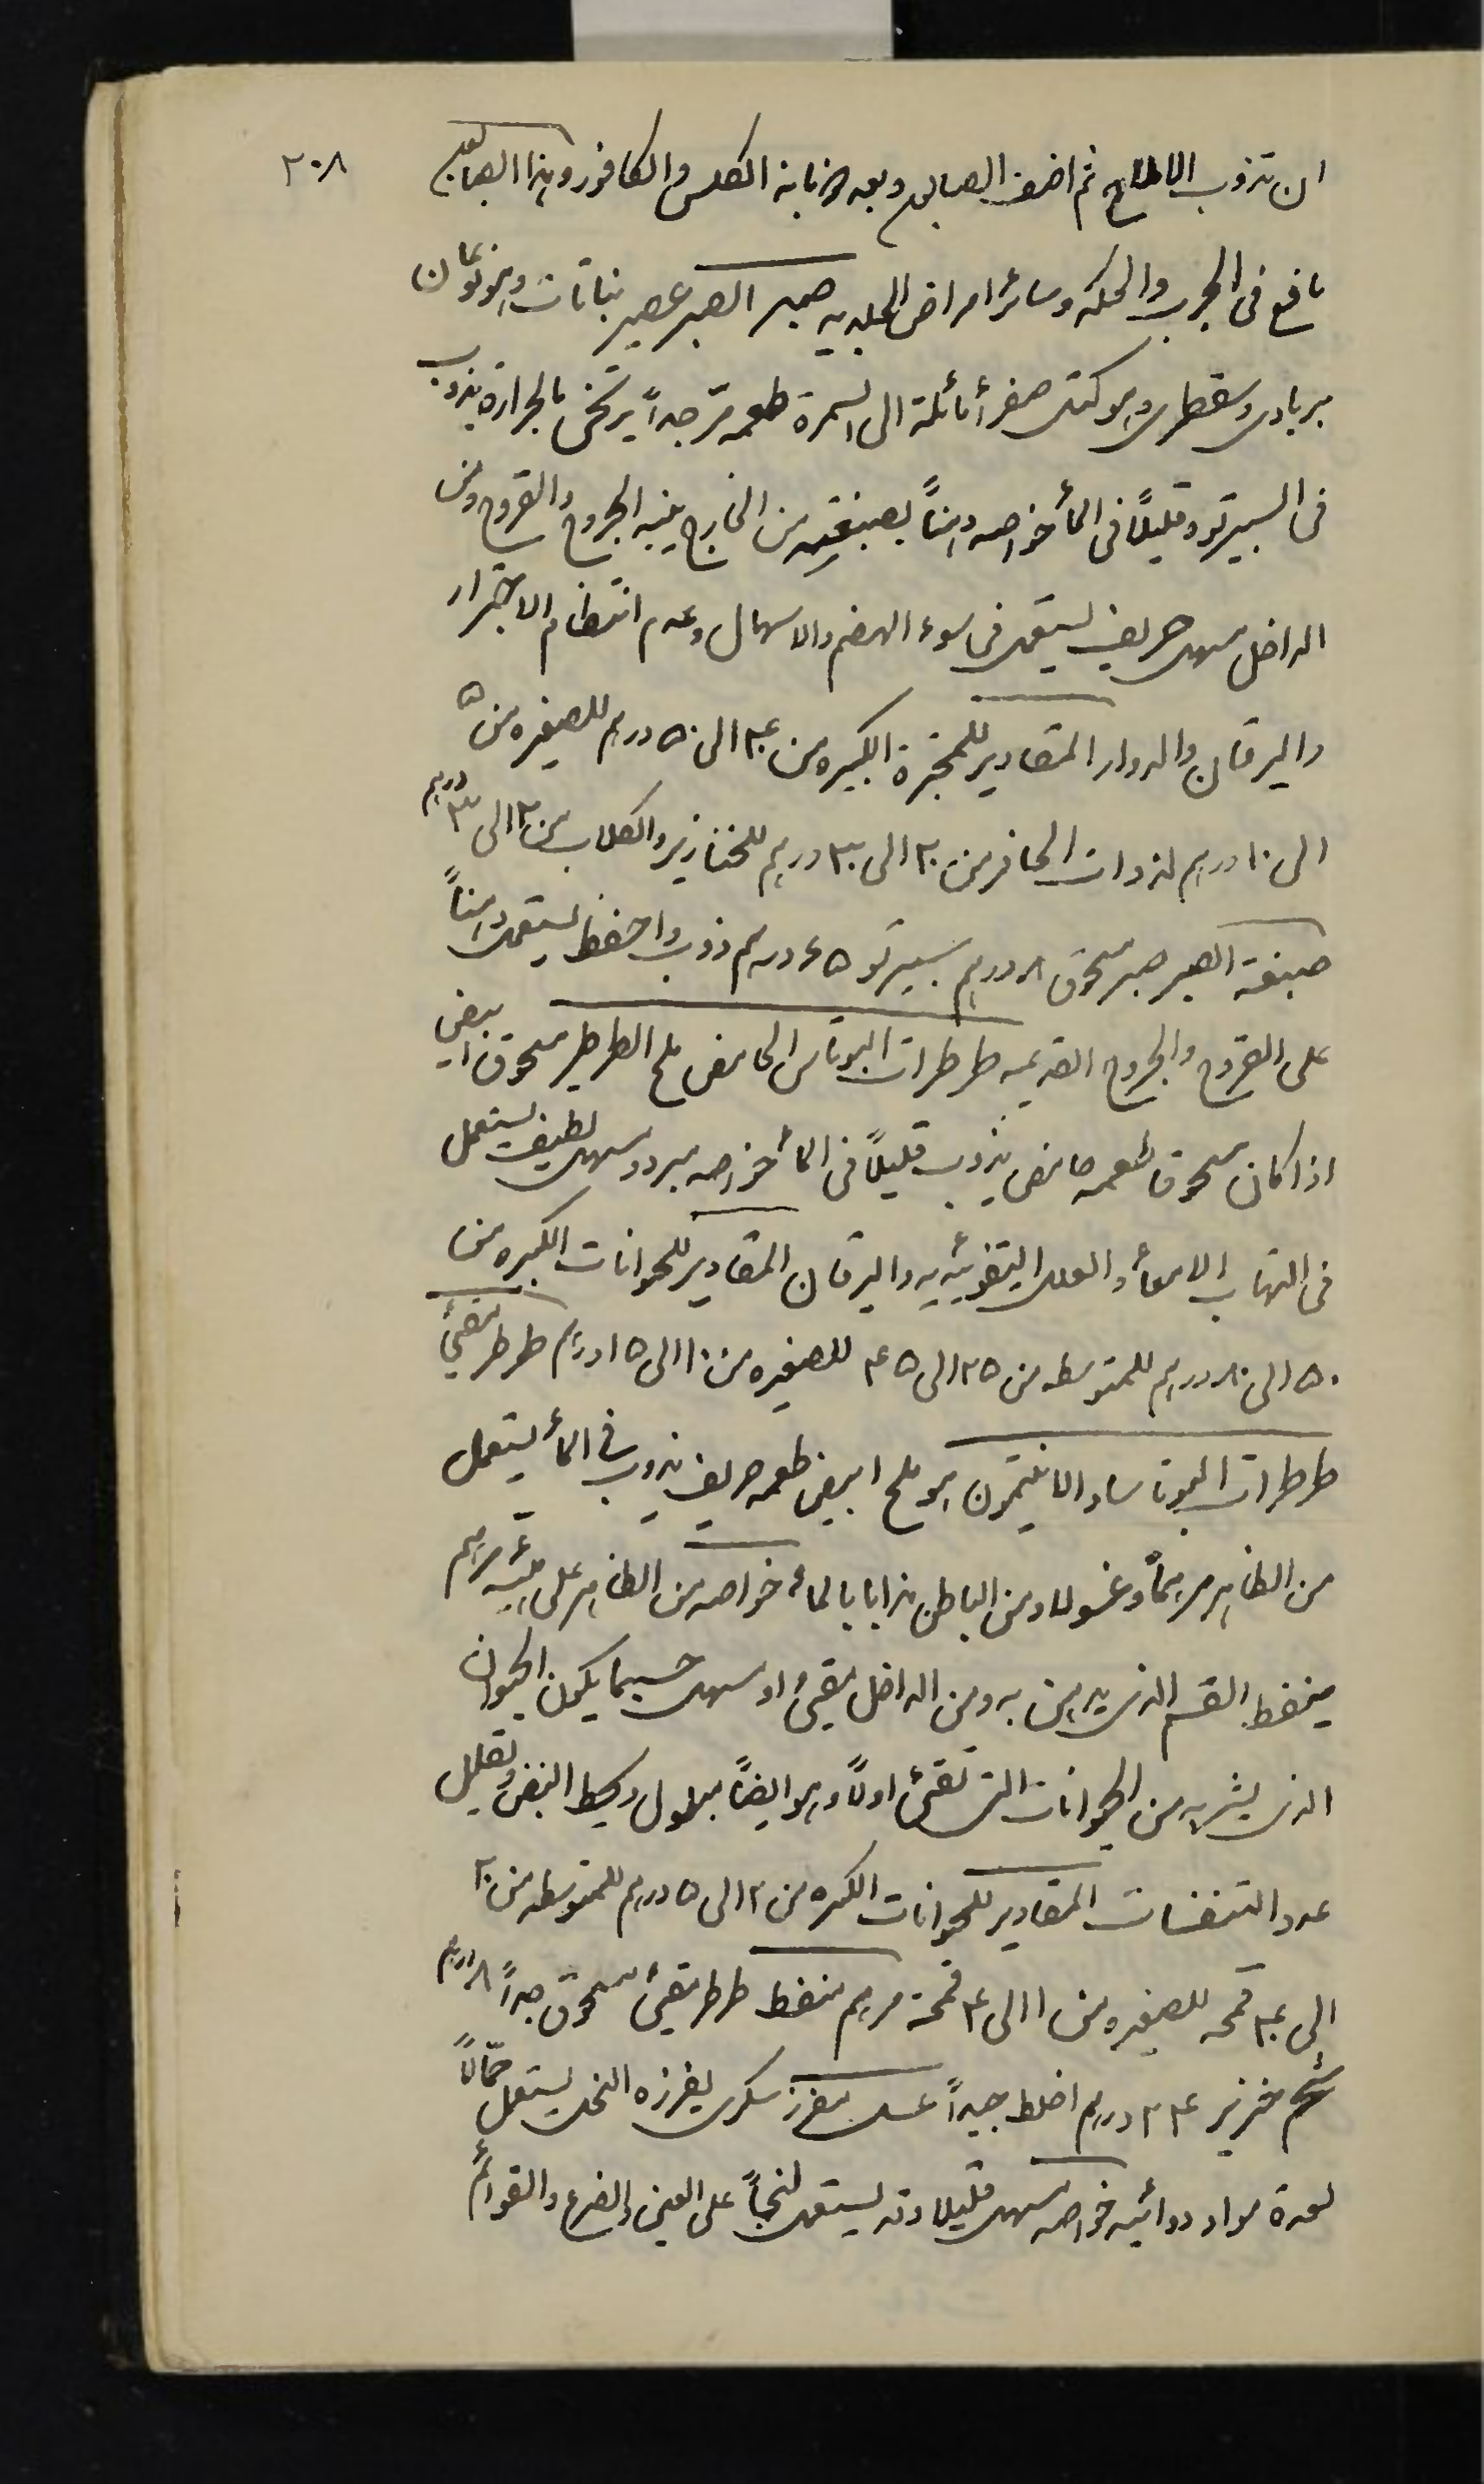 ٢٠٨
ان تذوب الاملاح ثم اضف الصابون وبعد الاذابة الكلس والكافور وهذا الصابون
نافع في الجرب والحكه وسائر امراض الجلديه صبر الصبر عصير نباتات وهو نوعان
بربادى وسقطرى وهو كتل صفرأ مائلة الى السمرة طعمه مرّ جداً يرتخى بالحرارة يذوب
فى السبيرتو وقليلاً فى المأ خواصه دهناً بصبغته من الخارج ينبه الجروح والقروح ومن
الداخل مسهل حريف يستعمل فى سوء الهضم والاسهال وعدم انتظام الاجترار
واليرقان والدوار المقادير للمجترة الكبيره من ٤٠ الى ٥٠ درهم للصغيره من ٥
الى ١٠ درهم لذوات الحافر من ٢٠ الى ٣٠ درهم للخنازير والكلاب من ٢ الى ٣ درهم
صبغة الصبر صبر مسحوق ٨ درهم سبيرتو ٤٥ درهم ذوب واحفظ يستعمل دهناً
على القروح والجروح القديمه طرطرات البوتاس الحامض ملح الطرطير مسحوق ابيض
اذا كان مسحوق طعمه حامض يذوب قليلاً فى المأ خواصه مبرد ومسهل لطيف يستعمل
فى التهاب الامعأ والعلل التيفوئيديه واليرقان المقادير للحيوانات الكبيره من
٥٠ الى ٨٠ درهم للمتوسطه من ٢٥ الى ٤٥ للصغيره من ١٠ الى ١٥ درهم طرطر مقيئ
طرطرات البوتاسا والانتيمون هو ملح ابيض طعمه حريف يذوب فى المأ يستعمل
من الظاهر مرهماً وغسولا ومن الباطن مذابا بالمأ خواصه من الظاهر على هيئة مرهم
ينفط القسم الذى يدهن به ومن الداخل مقيئ او مسهل حسبما يكون الحيوان
الذى يشربه من الحيوانات التى تقيئ اولاً وهو ايضاً مبول ويحط النبض ويقلل
عدد التنفسات المقادير للحيوانات الكبيره من ٢ الى ٥ درهم للمتوسطه من ٢٠
الى ٤٠ قمحه للصغيره من ١ الى ٤ قمحة مرهم منفط طرطر مقيئ مسحوق جداً ٨ درهم
شحم خنزير ٢٤ درهم اخلط جيداً عسل مفرز سكرى يفرزه النحل يستعمل حمّالاً
لعدة مواد دوائيه خواصه مسهل قليلا وقد يستعمل لبخاً على العين والضرع والقوائم